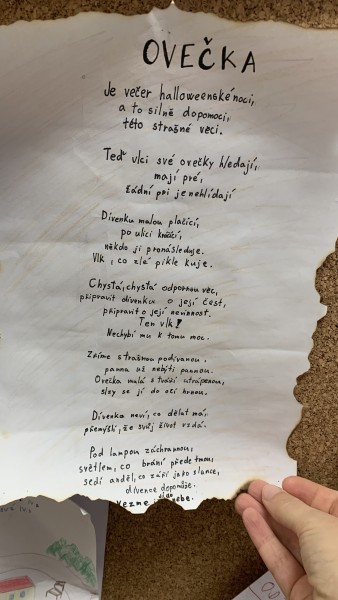 OVEČKA
Je večer halloweenské noci,
a to silně dopomoci,
této strašné věci.
Teď vlci své ovečky hledají,
mají pré,
žádní psi je nehlídají
Dívenku malou plačící,
po ulici kráčící,
někdo ji pronásleduje.
Vlk, co zlé pikle kuje.
Chystá, chystá odpornou věc,
připravit dívenku o její čest,
připravit o její nevinnost.
Ten vlk!
Nechybí mu k tomu moc.
Zříme strašnou podívanou,
panna už nebýti pannou.
Ovečka malá s tváří utrápenou,
slzy se jí do očí hrnou.
Dívenka neví, co dělat má,
přemýšlí, že svůj život vzdá.
Pod lampou záchrannou,
světlem, co brání před tmou,
sedí anděl, co září jako slunce,
dívence dopomůže.
vezme ji do nebe.